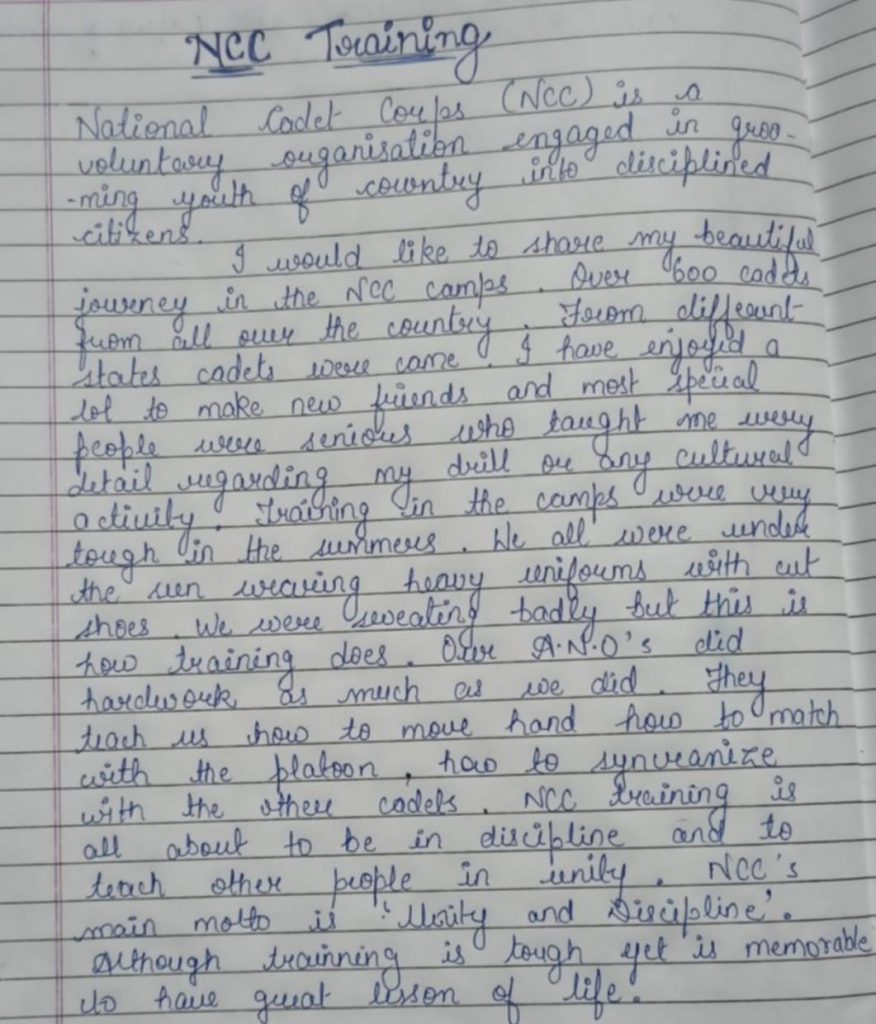 NCC Training
National Cadet Corps (NCC) is a
voluntary organisation engaged in groo-
-ming youth of country into disciplined
citizens.
I would like to share my beautiful
journey in the NCC camps. Over 600 cadets
from all over the country. From different
states cadets were came. I have enjoyed a
lot to make new friends and most special
people were seniors who taught me every
detail regarding my drill or any cultural
activity. Training in the camps were very
tough in the summers. We all were under
the sun wearing heavy uniforms with cut
shoes. We were sweating badly but this is
how training does. Our A.N.O's did
hardwork as much as we did. They
teach us how to move hand how to match
with the platoon, how to synranize
with the other cadets. NCC training is
all about to be in discipline and to
teach other people in unity. NCC's
main motto is 'Unity and Discipline'.
Although trainning is tough yet is memorable
to have great lesson of life.